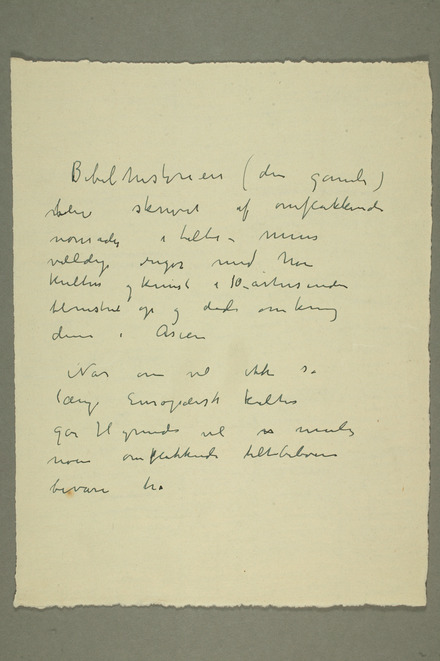 Bibelhistorien (den gamle)
blev skrevet af omflakkende
nomader i telte - mens
vældige riger med
kultur og kunst i 10-artusinder
blomstrede op og døde omkring
dem i Asien
Naar om vel ikke så
længe Europæisk kultur
går til grunde vil måske
nom omflakkende teltbeboere
bevare